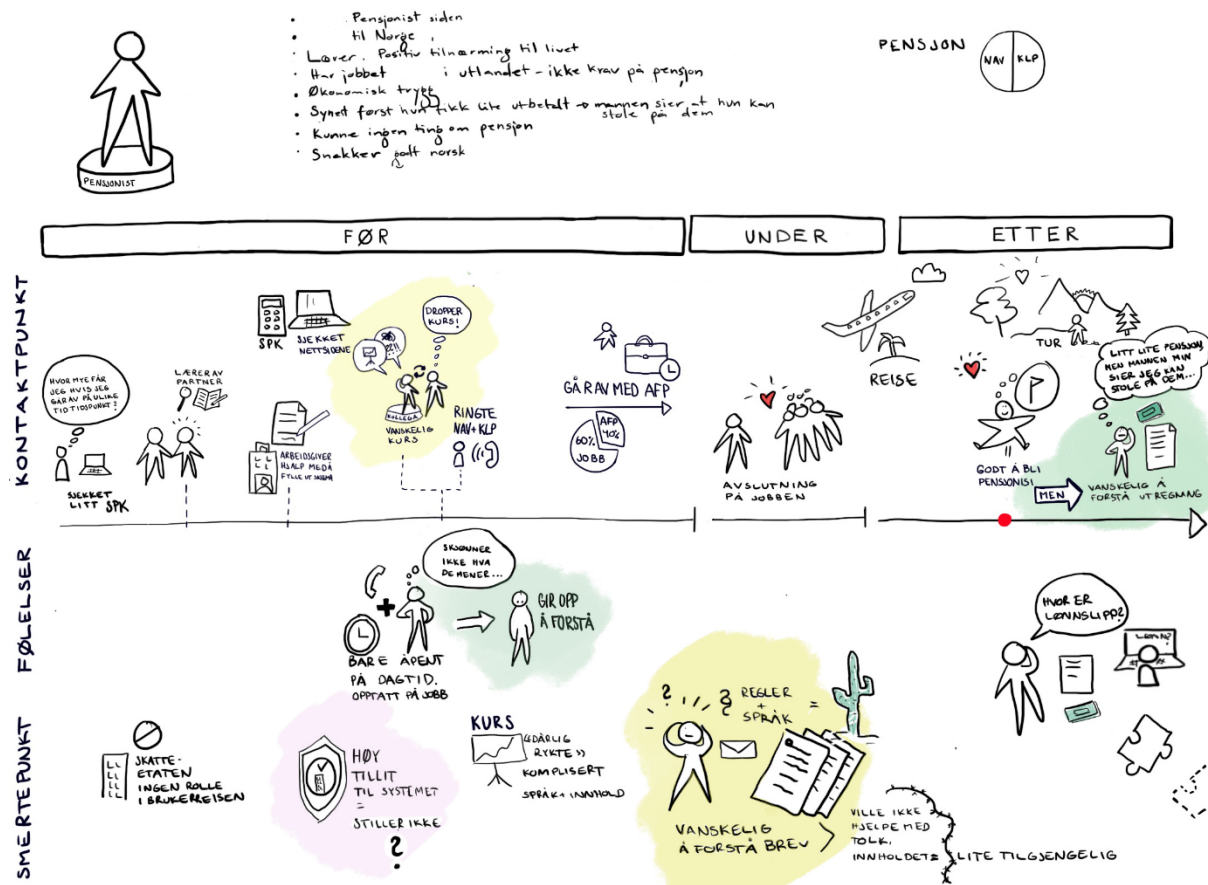 Pensjonist siden
til Norge
Lærer. Positiv tilnærming til livet
Har jobbet i utlandet - ikke krav på pensjon
Økonomisk trygg
Synes først hun fikk lite utbetalt → mannen sier at hun kan
stole på dem
Kunne ingen ting om pensjon
Snakker godt norsk
PENSJONIST
PENSJON
NAV
KLP
FØR
UNDER
ETTER
KONTAKTPUNKT
HVOR MYE FÅR
JEG HVIS JEG
GÅR AV PÅ ULIKE
TIDTIDSPUNKT?
SJEKKET
LITT SPK
LÆRER AV
PARTNER
SPK
SJEKKET
NETTSIDENE
ARBEIDSGIVER
HJALP MED Å
FYLLE UT SKJEMA
DROPPER
KURS!
KOLLEGA
VANSKELIG
KURS
RINGTE
NAV+KLP
GÅR AV MED AFP
AFP
40%
60%
JOBB
AVSLUTNING
PÅ JOBBEN
REISE
TUR
GODT Å BLI
PENSJONIST
MEN
LITT LITE PENSJON,
MEN MANNEN MIN
SIER JEG KAN
STOLE PÅ DEM...
VANSKELIG Å
FORSTÅ UTREGNING
FØLELSER
SKJØNNER
IKKE HVA
DE MENER...
BARE ÅPENT
PÅ DAGTID.
OPPTATT PÅ JOBB
GIR OPP
Å FORSTÅ
HVOR ER
LØNNSLIPP?
LØNN?
SMERTEPUNKT
SKATTE-
ETATEN
INGEN ROLLE
I BRUKERREISEN
HØY
TILLIT
TIL SYSTEMET
=
STILLER IKKE
?
KURS
"DÅRLIG
RYKTE"
KOMPLISERT
SPRÅK+INNHOLD
?
REGLER
+
SPRÅK
=
VANSKELIG
Å FORSTÅ BREV
VILLE IKKE
HJELPE MED
TOLK,
INNHOLDET =
LITE TILGJENGELIG